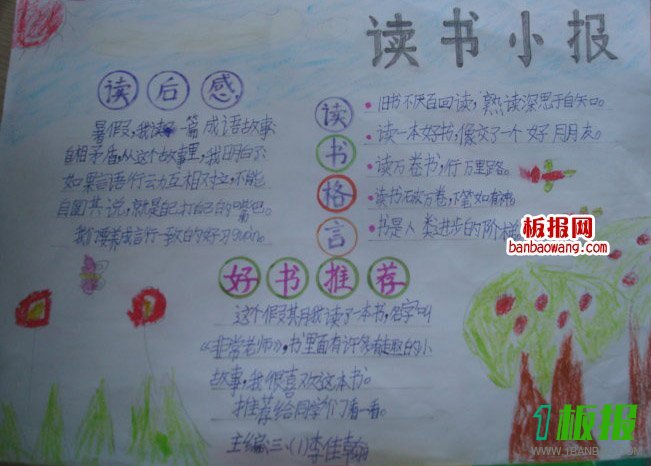 读书小报
读后感
暑假,我读了一篇成语故事
自相矛盾,从这个故事里,我明白了
如果言语行动互相对立,不能
自圆其说,就是自己打自己的嘴巴。
我们要养成言行一致的好习guàn。
读书格言
旧书不厌百回读,熟读深思子自知。
读一本好书,像交了一个好朋友。
读万卷书,行万里路。
读书破万卷,下笔如有神。
书是人类进步的阶梯
板报网
banbaowang.com
好书推荐
这个假其月我读了一本书,名字叫
《非常老师》,书里面有许多有趣的小
故事,我很喜欢这本书。
推荐给同学们看一看。
主编:三(1)李佳翰
1板报
WWW.1BANBAO.COM